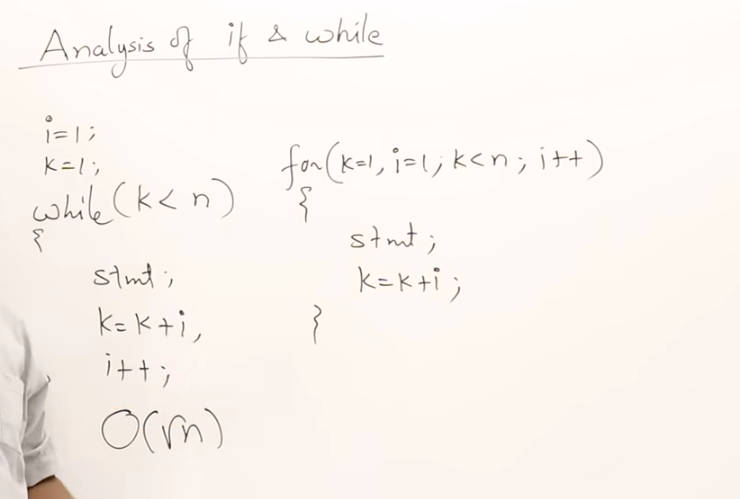 Analysis of if & while
i=1;
k=1;
while(k<n)
{
stmt;
k=k+i,
i++;
O(√n)
for(k=1, i=1; k<n; i++)
{
stmt;
k=k+i;
}